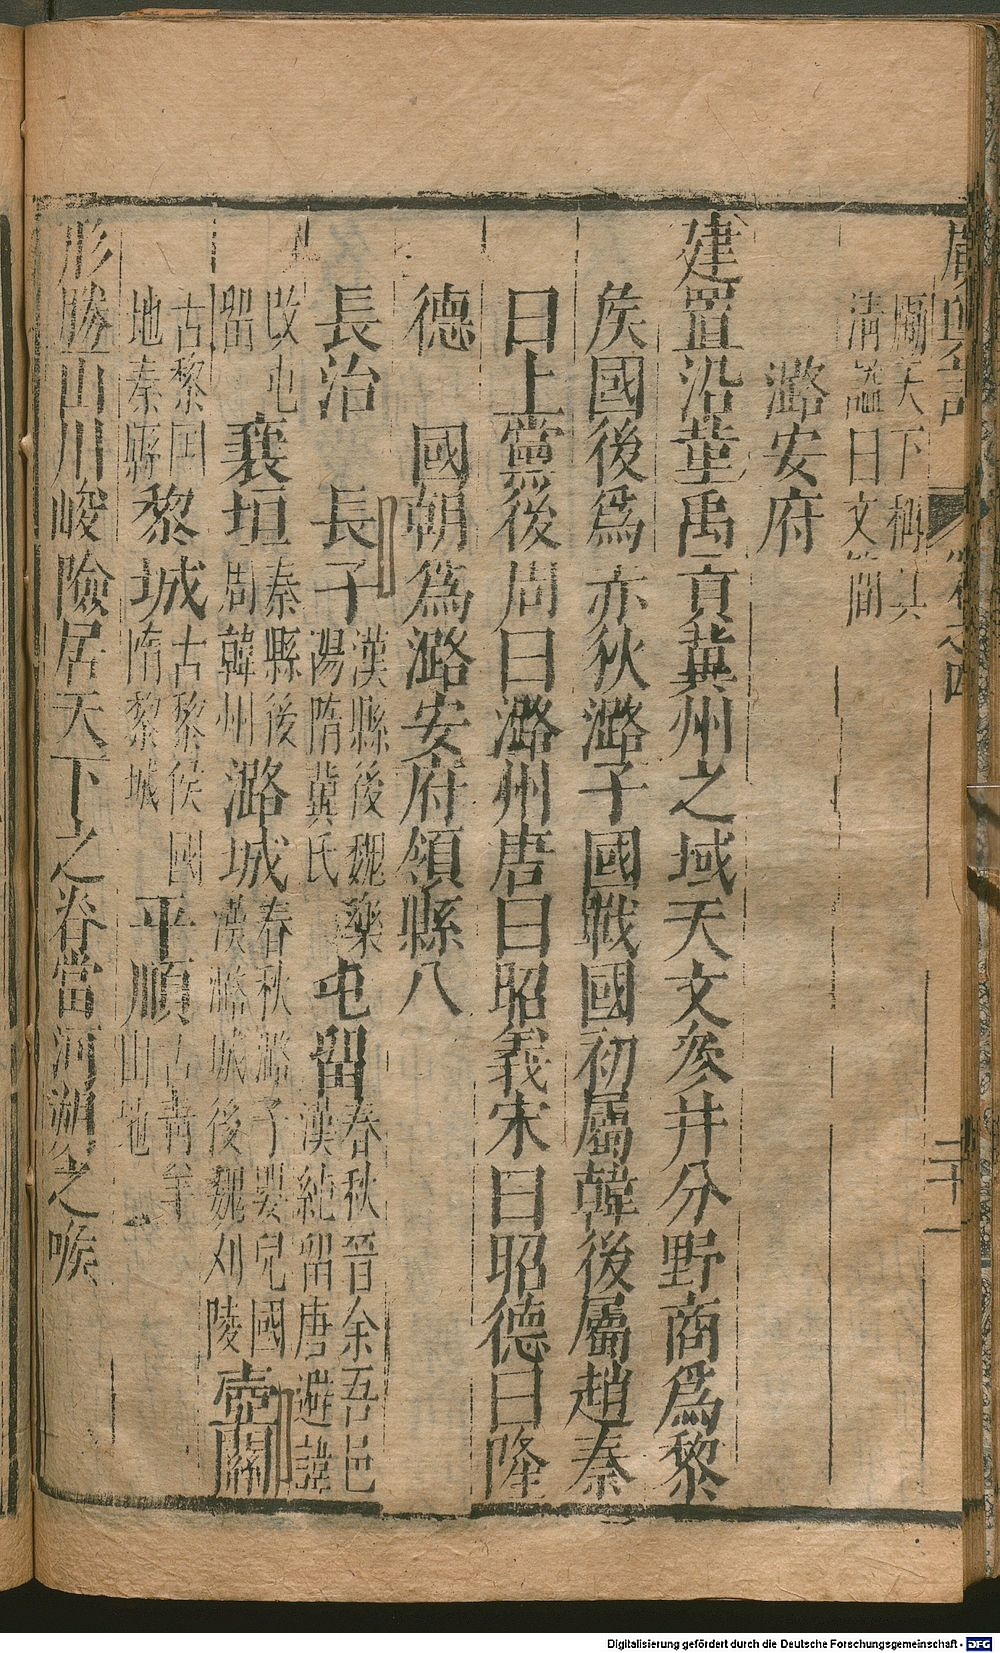 廣輿記 卷之四 二十一
天下稱其
清謚曰文簡
潞安府
建置沿革禹貢冀州之域天文參井分野商爲黎
侯國後爲赤狄潞子國戰國初屬韓後屬趙秦
曰上黨後周曰潞州唐曰昭義宋曰昭德曰隆
德 國朝爲潞安府領縣八
長治 長子 漢縣後魏樂陽隋冀氏 屯留 春秋晉余吾邑漢純留唐避諱
改屯留 襄垣 秦縣後周韓州 潞城 春秋潞子嬰兒國漢潞城後魏刈陵 壺關
古黎國地秦縣 黎城 古黎侯國隋黎城 平順 古青羊山地
形勝山川峻險居天下之脊當河朔之喉
Digitalisierung gefördert durch die Deutsche Forschungsgemeinschaft - DFG